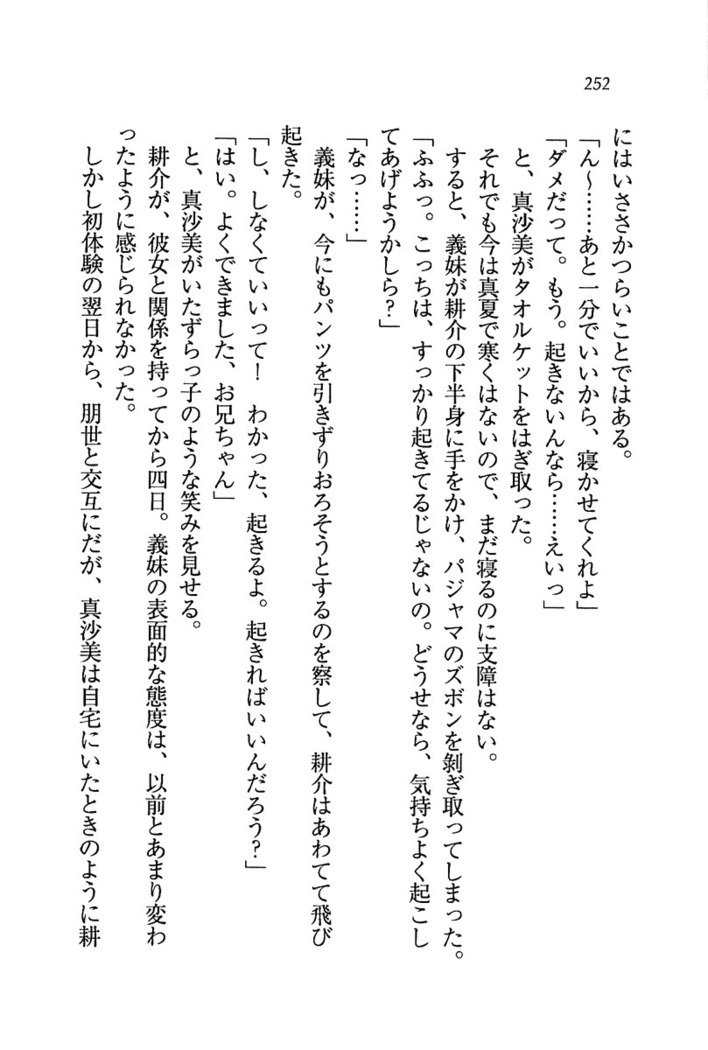 252
にはいささかつらいことではある。
「ん〜……あと一分でいいから、寝かせてくれよ」
「ダメだって。もう。起きないんなら……えいっ」
と、真沙美がタオルケットをはぎ取った。
それでも今は真夏で寒くはないので、まだ寝るのに支障はない。
すると、義妹が耕介の下半身に手をかけ、パジャマのズボンを剝ぎ取ってしまった。
「ふふっ。こっちは、すっかり起きてるじゃないの。どうせなら、気持ちよく起こし
てあげようかしら？」
「なっ……」
義妹が、今にもパンツを引きずりおろそうとするのを察して、耕介はあわてて飛び
起きた。
「し、しなくていいって！　わかった、起きるよ。起きればいいんだろう？」
「はい。よくできました、お兄ちゃん」
と、真沙美がいたずらっ子のような笑みを見せる。
耕介が、彼女と関係を持ってから四日。義妹の表面的な態度は、以前とあまり変わ
ったように感じられなかった。
しかし初体験の翌日から、朋世と交互にだが、真沙美は自宅にいたときのように耕